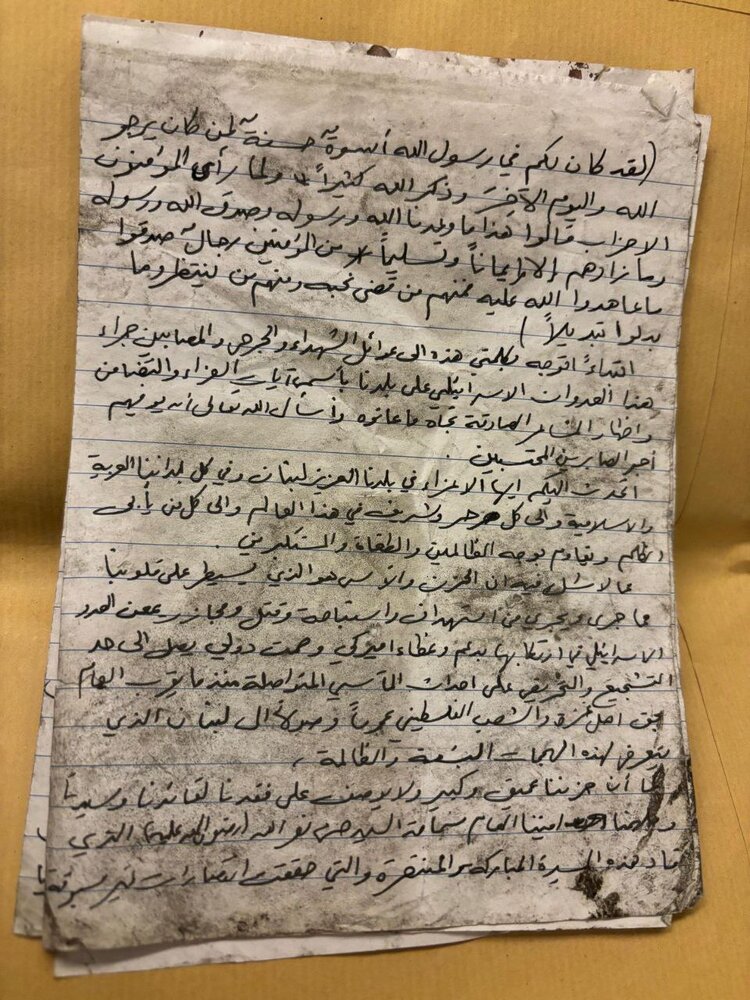 (لقد كان لكم في رسول الله أسوةٌ حسنةٌ لمن كان يرجو
الله واليوم الآخِرَ وذكر الله كثيراً ولما رأى المؤمنون
الاحزاب قالوا هذا ما وعدنا الله ورسوله وصدق الله ورسوله
وما زادهم إلا ايماناً وتسليماً من المؤمنين رجالٌ صدقوا
ما عاهدوا الله عليه فمنهم من قضى نحبه ومنهم من ينتظر وما
بدلوا تبديلاً)
ابتداءً اتوجه بكلمتي هذه الى عوائل الشهداء والجرحى والمصابين جراء
هذا العدوان الاسرائيلي على بلدنا بأسمى آيات العزاء والتضامن
واظهار المشاعر الصادقة تجاه ما عانوه وأسأل الله تعالى أن يوفيهم
أجر الصابرين المحتسبين.
اتحدث اليكم ايها الاعزاء في بلدنا العزيز لبنان وفي كل بلداننا العربية
والاسلامية والى كل حر وشريف في هذا العالم والى كل من يأبى
الظلم ويقاوم بوجه الظالمين والطغاة والمستكبرين.
مما لا شك فيه ان الحزن والأسى هو الذي يسيطر على قلوبنا
مما جرى ويجري من استهداف واستباحة وقتل ومجازر يمعن العدو
الاسرائيلي في ارتكابها بدعم وغطاء اميركي وصمت دولي يصل الى حد
التشجيع والتحريض على احداث المآسي المتواصلة منذ ما يقرب العام
بحق اهل غزة والشعب الفلسطيني عموماً وصولاً الى لبنان الذي
يتعرض لهذه الهجمات البشعة والظالمة،
كما أن حزننا عميق وكبير ولا يوصف على فقدنا لقائدنا وسيدنا
اميننا العام سماحة السيد حسن نصر الله (رضوان الله عليه) الذي
قاد هذه المسيرة المباركة والمنتصرة والتي حققت انتصارات غير مسبوقة